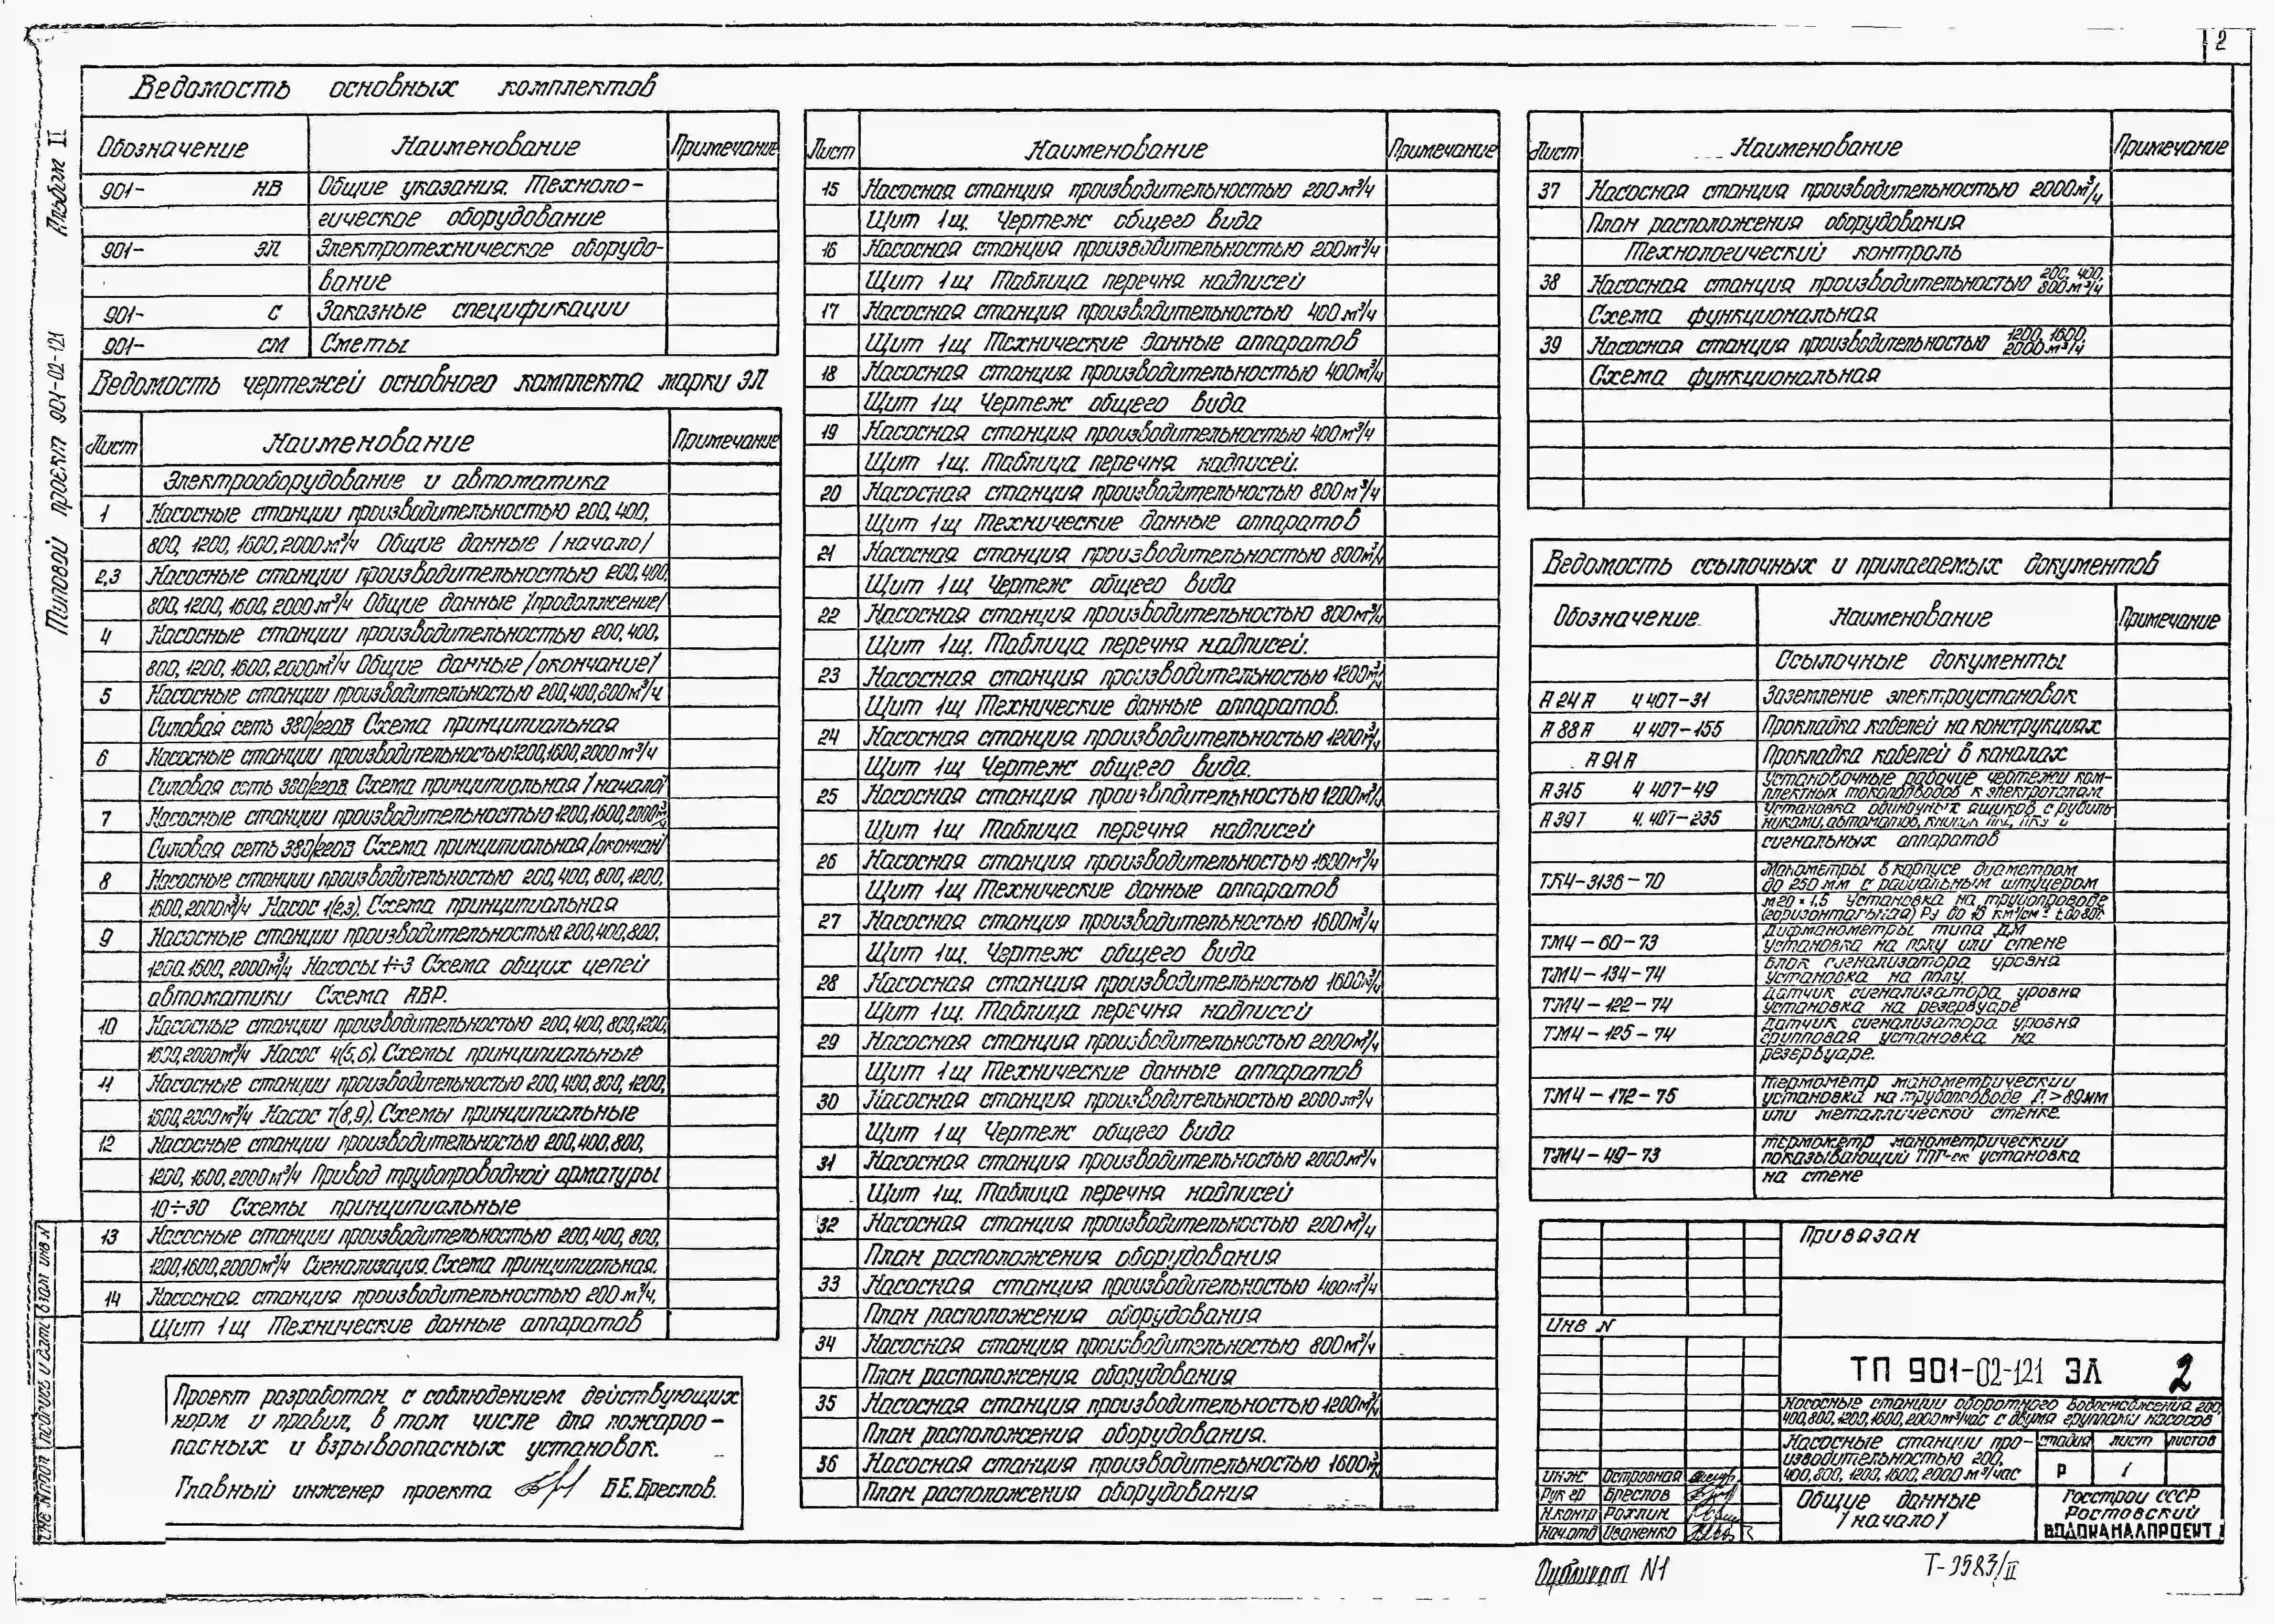 2
Альбом II
Типовой проект 901-02-121
Ведомость основных комплектов
Обозначение Наименование Примечание
901- НВ Общие указания. Техноло-
гическое оборудование
901- ЭЛ Электротехническое оборудо-
вание
901- С Заказные спецификации
901- СМ Сметы
Ведомость чертежей основного комплекта марки ЭЛ
Лист Наименование Примечание
Электрооборудование и автоматика
1 Насосные станции производительностью 200, 400,
800, 1200, 1600, 2000 м³/ч Общие данные /начало/
2,3 Насосные станции производительностью 200, 400,
800, 1200, 1600, 2000 м³/ч Общие данные /продолжение/
4 Насосные станции производительностью 200, 400,
800, 1200, 1600, 2000 м³/ч Общие данные /окончание/
5 Насосные станции производительностью 200, 400, 800 м³/ч
Силовая сеть 380/220В Схема принципиальная
6 Насосные станции производительностью 1200, 1600, 2000 м³/ч
Силовая сеть 380/220В. Схема принципиальная /начало/
7 Насосные станции производительностью 1200, 1600, 2000 м³/ч
Силовая сеть 380/220В Схема принципиальная /окончан/
8 Насосные станции производительностью 200, 400, 800, 1200,
1600, 2000 м³/ч Насос 1(2,3). Схема принципиальная
9 Насосные станции производительностью 200, 400, 800,
1200, 1600, 2000 м³/ч Насосы 1÷3 Схема общих цепей
автоматики Схема АВР.
10 Насосные станции производительностью 200, 400, 800, 1200,
1600, 2000 м³/ч Насос 4(5,6). Схемы принципиальные
11 Насосные станции производительностью 200, 400, 800, 1200,
1600, 2000 м³/ч Насос 7(8,9). Схемы принципиальные
12 Насосные станции производительностью 200, 400, 800,
1200, 1600, 2000 м³/ч Привод трубопроводной арматуры
10÷30 Схемы принципиальные
13 Насосные станции производительностью 200, 400, 800,
1200, 1600, 2000 м³/ч Сигнализация. Схема принципиальная.
14 Насосная станция производительностью 200 м³/ч,
Щит 1щ Технические данные аппаратов
Проект разработан с соблюдением действующих
норм и правил, в том числе для пожароо-
пасных и взрывоопасных установок.
Главный инженер проекта Б.Е.Бреслов.
Лист Наименование Примечание
15 Насосная станция производительностью 200 м³/ч
Щит 1щ. Чертеж общего вида
16 Насосная станция производительностью 200 м³/ч
Щит 1щ Таблица перечня надписей
17 Насосная станция производительностью 400 м³/ч
Щит 1щ Технические данные аппаратов
18 Насосная станция производительностью 400 м³/ч
Щит 1щ Чертеж общего вида
19 Насосная станция производительностью 400 м³/ч
Щит 1щ. Таблица перечня надписей.
20 Насосная станция производительностью 800 м³/ч
Щит 1щ Технические данные аппаратов
21 Насосная станция производительностью 800 м³/ч
Щит 1щ Чертеж общего вида
22 Насосная станция производительностью 800 м³/ч
Щит 1щ. Таблица перечня надписей.
23 Насосная станция производительностью 1200 м³/ч
Щит 1щ Технические данные аппаратов.
24 Насосная станция производительностью 1200 м³/ч
Щит 1щ Чертеж общего вида.
25 Насосная станция производительностью 1200 м³/ч
Щит 1щ Таблица перечня надписей
26 Насосная станция производительностью 1600 м³/ч
Щит 1щ Технические данные аппаратов
27 Насосная станция производительностью 1600 м³/ч
Щит 1щ. Чертеж общего вида
28 Насосная станция производительностью 1600 м³/ч
Щит 1щ. Таблица перечня надписей
29 Насосная станция производительностью 2000 м³/ч
Щит 1щ Технические данные аппаратов
30 Насосная станция производительностью 2000 м³/ч
Щит 1щ Чертеж общего вида
31 Насосная станция производительностью 2000 м³/ч
Щит 1щ. Таблица перечня надписей
32 Насосная станция производительностью 200 м³/ч
План расположения оборудования
33 Насосная станция производительностью 400 м³/ч
План расположения оборудования
34 Насосная станция производительностью 800 м³/ч
План расположения оборудования
35 Насосная станция производительностью 1200 м³/ч
План расположения оборудования.
36 Насосная станция производительностью 1600 м³/ч
План расположения оборудования
Лист Наименование Примечание
37 Насосная станция производительностью 2000 м³/ч
План расположения оборудования
Технологический контроль
38 Насосная станция производительностью 200, 400, 800 м³/ч
Схема функциональная
39 Насосная станция производительностью 1200, 1600, 2000 м³/ч
Схема функциональная
Ведомость ссылочных и прилагаемых документов
Обозначение Наименование Примечание
Ссылочные документы
А24А 4 407-31 Заземление электроустановок
А88А 4 407-155 Прокладка кабелей на конструкциях
А91А Прокладка кабелей в каналах
А315 4 407-49 Установочные рабочие чертежи ком-
плектных токоподводов к электроталям
А397 4.407-235 Установка одиночных ящиков с рубиль
никами, автоматов, кнопок ПКЕ, ПКУ и
сигнальных аппаратов
ТК4-3136-70 Манометры в корпусе диаметром
до 250 мм с радиальным штуцером
М20×1,5 Установка на трубопроводе
(горизонтальная) Ру до 16
ТМ4-60-73 Дифманометры типа ДМ
установка на полу или стене
ТМ4-134-74 Блок сигнализатора уровня
установка на полу.
ТМ4-122-74 Датчик сигнализатора уровня
установка на резервуаре
ТМ4-125-74 Датчик сигнализатора уровня
групповая установка на
резервуаре.
ТМ4-172-75 Термометр манометрический
установка на трубопроводе Д>89мм
или металлической стенке.
ТМ4-49-73 Термометр манометрический
показывающий ТПГ-СК установка
на стене
Привязан
Инв N
ТП 901-02-121 ЭЛ 2
Насосные станции оборотного водоснабжения 200,
400, 800, 1200, 1600, 2000 м³/час с двумя группами насосов
Насосные станции про-
изводительностью 200,
400, 800, 1200, 1600, 2000 м³/час
стадия лист листов
Р 1
Инж Островная
Рук гр Бреслов
Н.контр Рохлин
Нач.отд Иваненко
Общие данные
/начало/
Госстрой СССР
Ростовский
ВОДОКАНАЛПРОЕКТ
Инв N подл Подпись и дата Взам инв N
N1
Т-9583/II